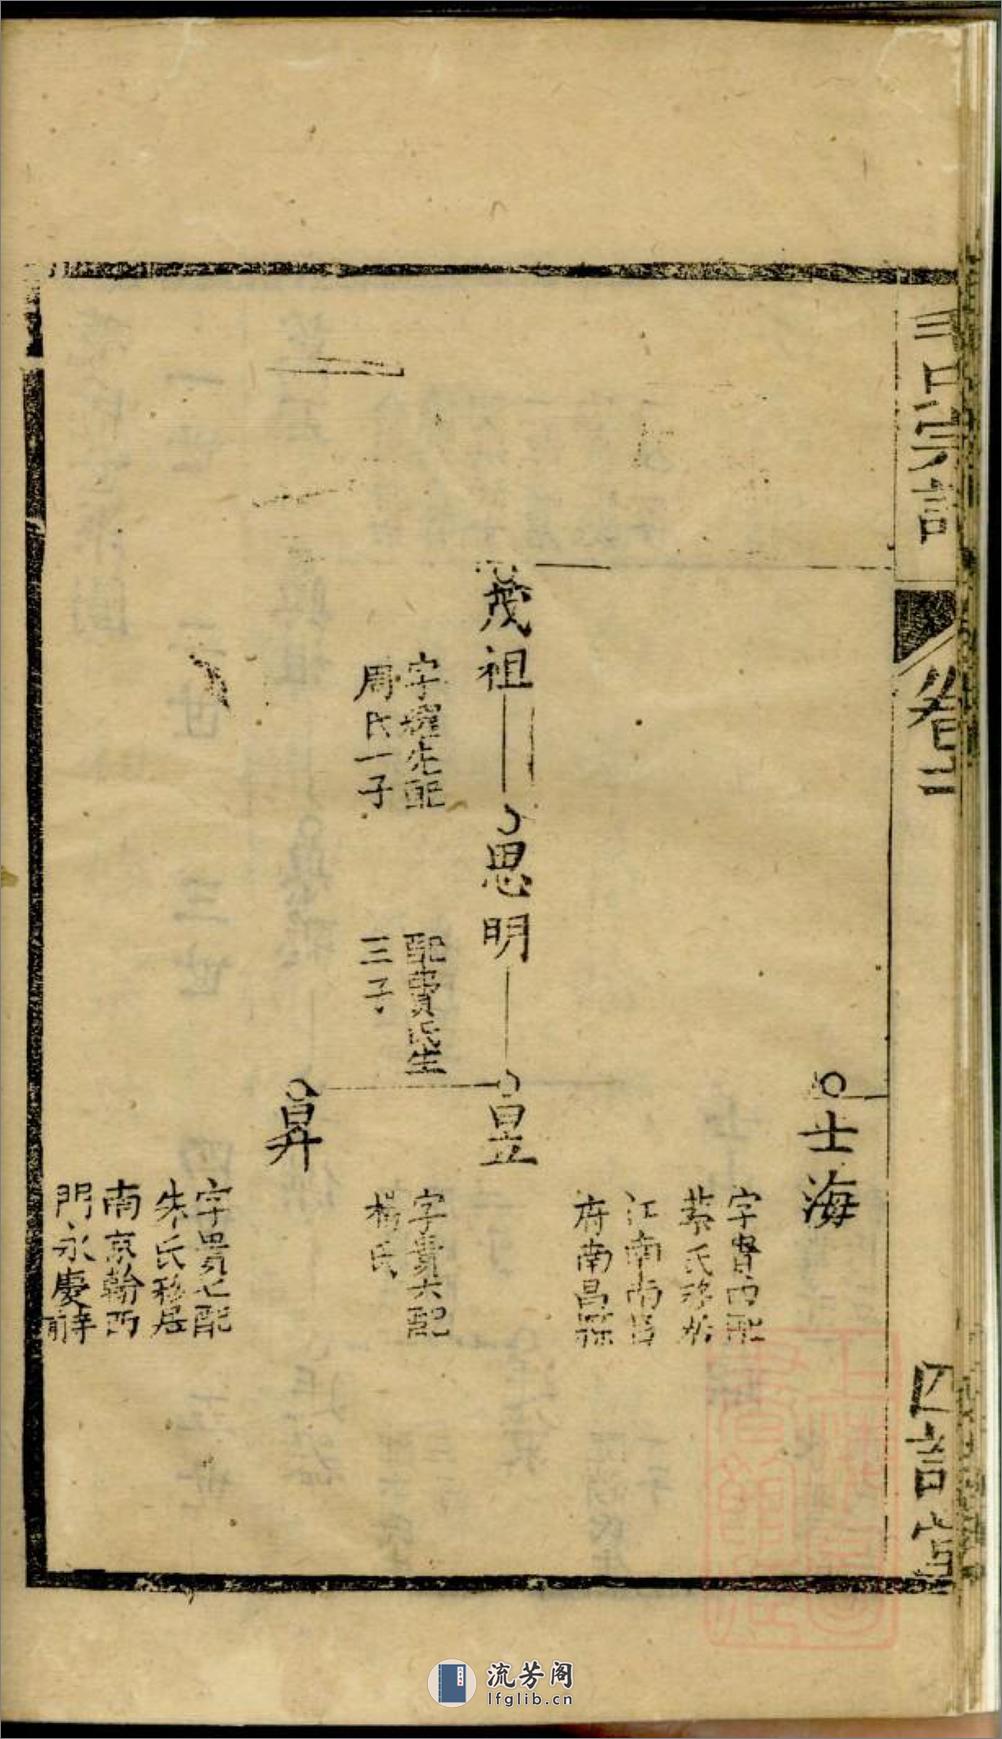 卷二
士海
字賢西配
蔡氏移居
江南南昌
府南昌縣
茂祖
字耀先配
周氏一子
思明
配費氏生
三子
昱
字貴六配
楊氏
昇
字貴七配
朱氏移居
南京翰西
門永慶
流芳阁
lfglib.cn